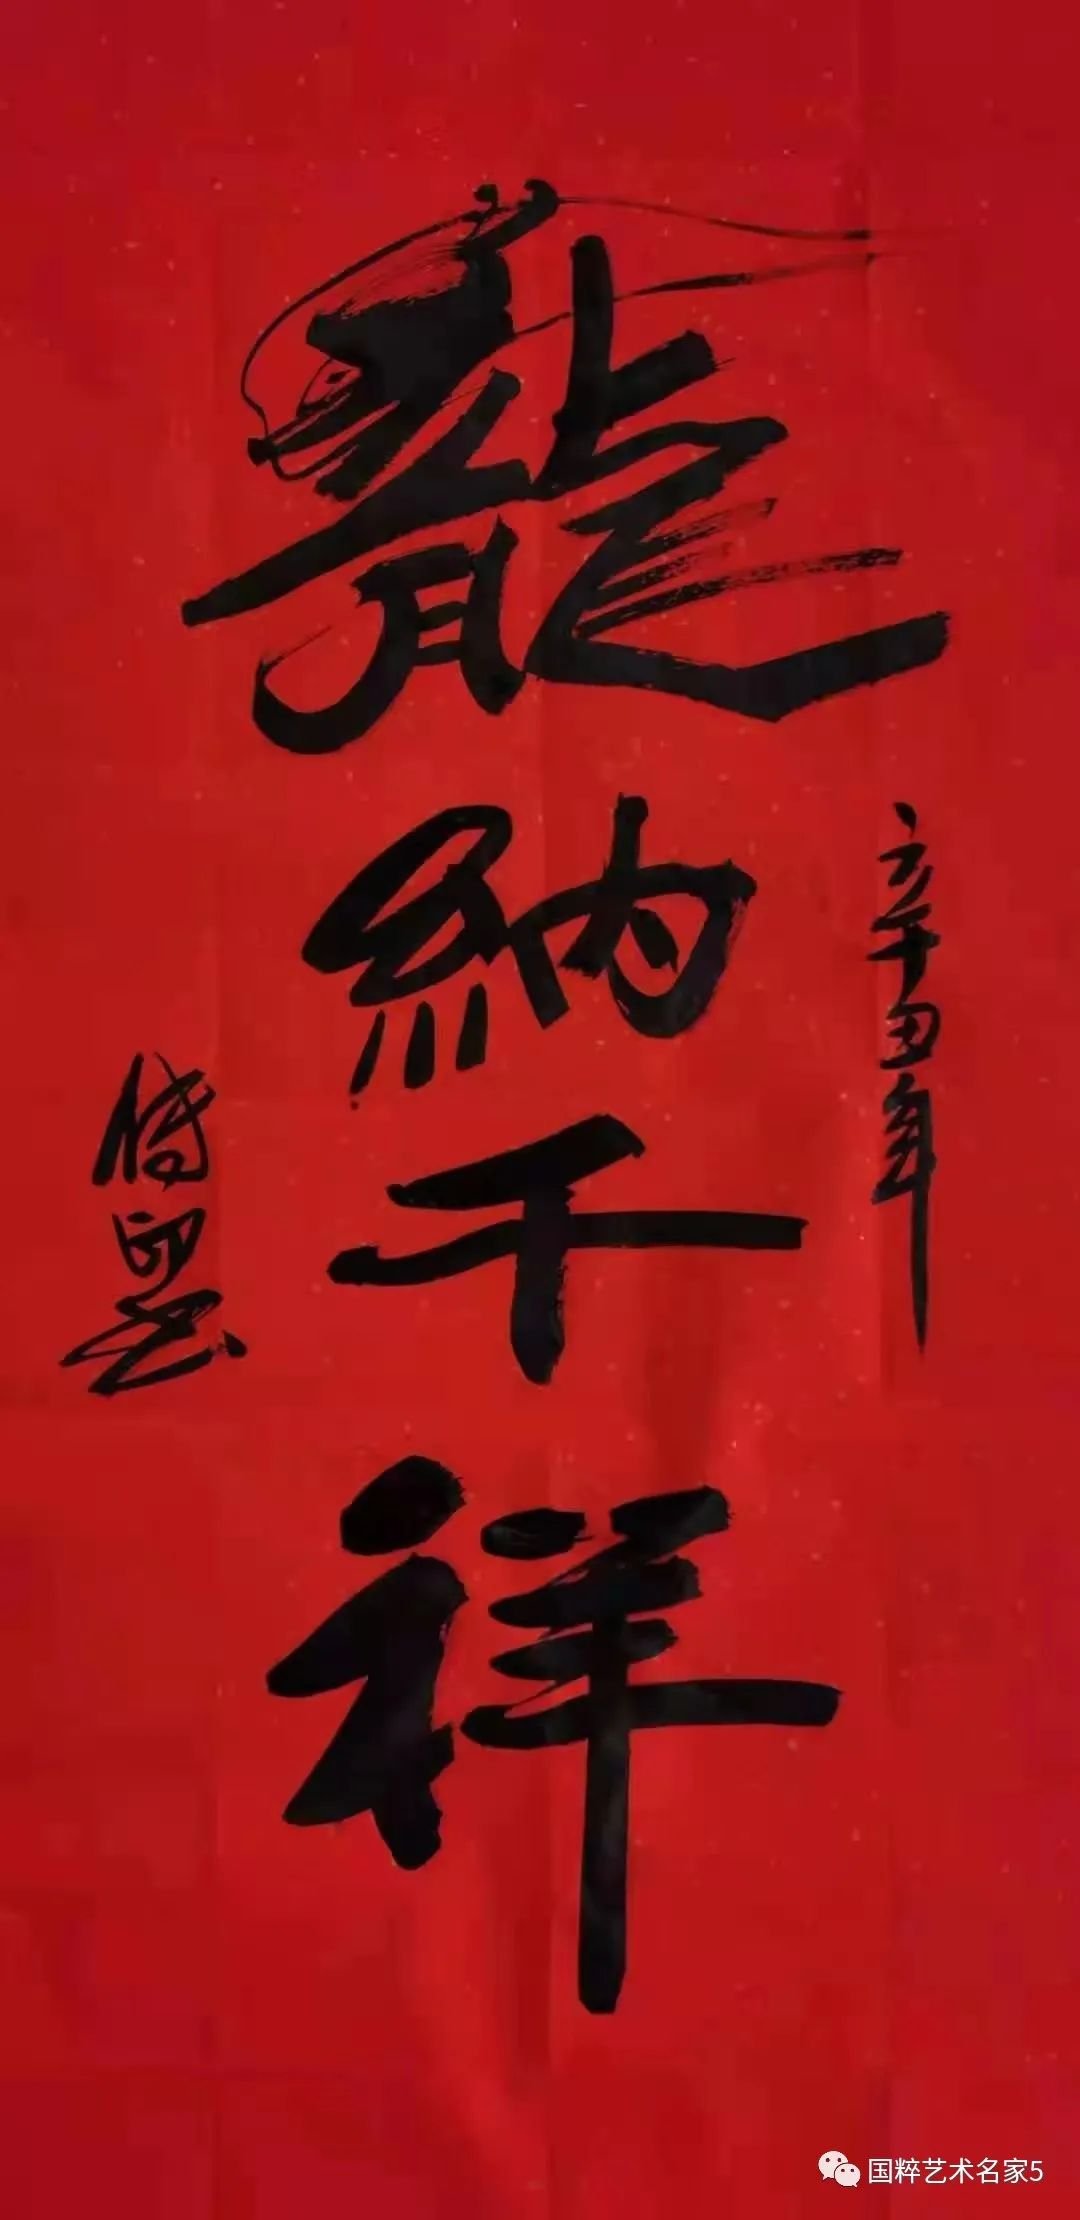 辛丑年
龍納千祥
国粹艺术名家5